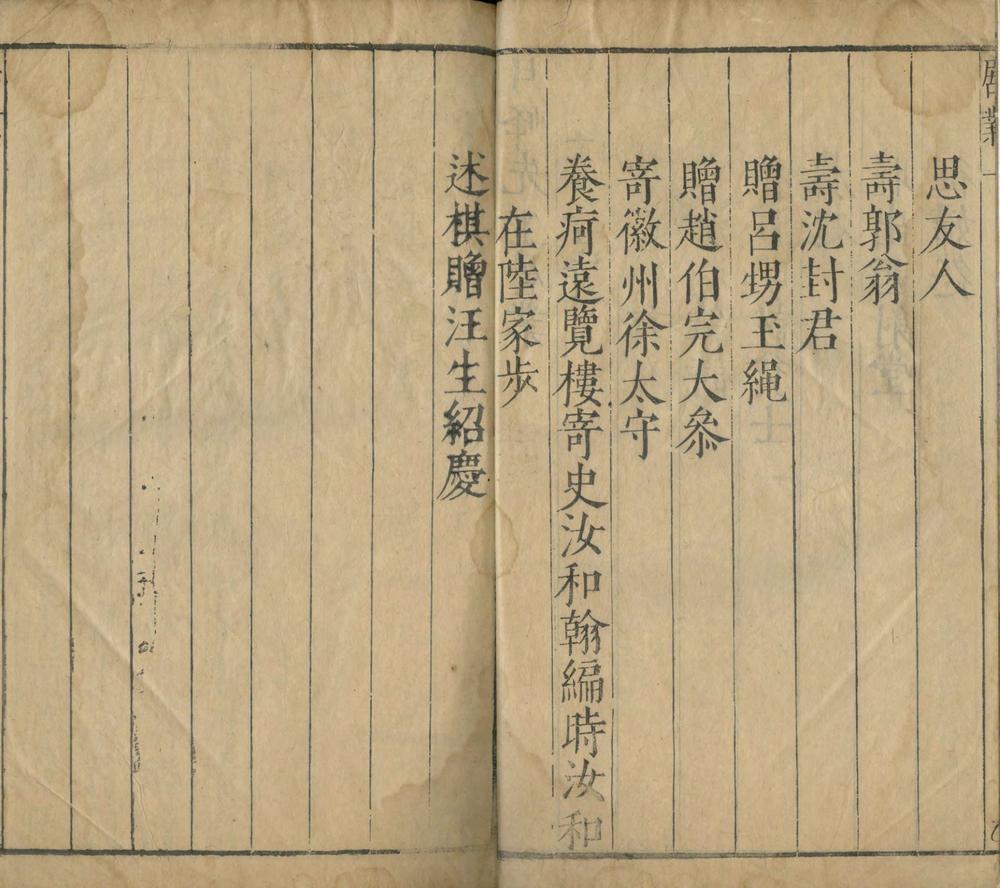 思友人
壽郭翁
壽沈封君
贈呂甥玉繩
贈趙伯完大叅
寄徽州徐太守
養疴遠覽樓寄史汝和翰編時汝和
在陸家步
述棋贈汪生紹慶